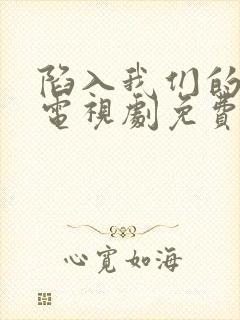 陷入我们的
電視劇免費
心寬如海